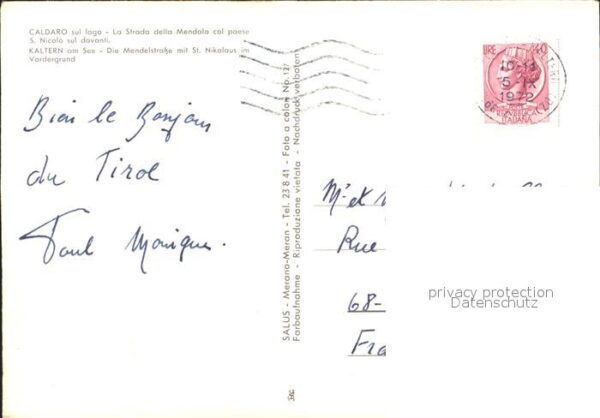 CALDARO sul lago - La Strada della Mendola col paese
S. Nicolo sul davanti.
KALTERN am See - Die Mendelstraße mit St. Nikolaus im
Vordergrund
LIRE 40
10-11
5-IX
1972
REPUBBLICA
ITALIANA
Bien le Bonjour
du Tirol
Paul Monique.
SALUS - Merano-Meran - Tel. 23 8 41 - Foto a colori No. 127
Farbaufnahme - Riproduzione vietata - Nachdruck verboten
Mr et
Rue
68-
Fra
privacy protection
Datenschutz